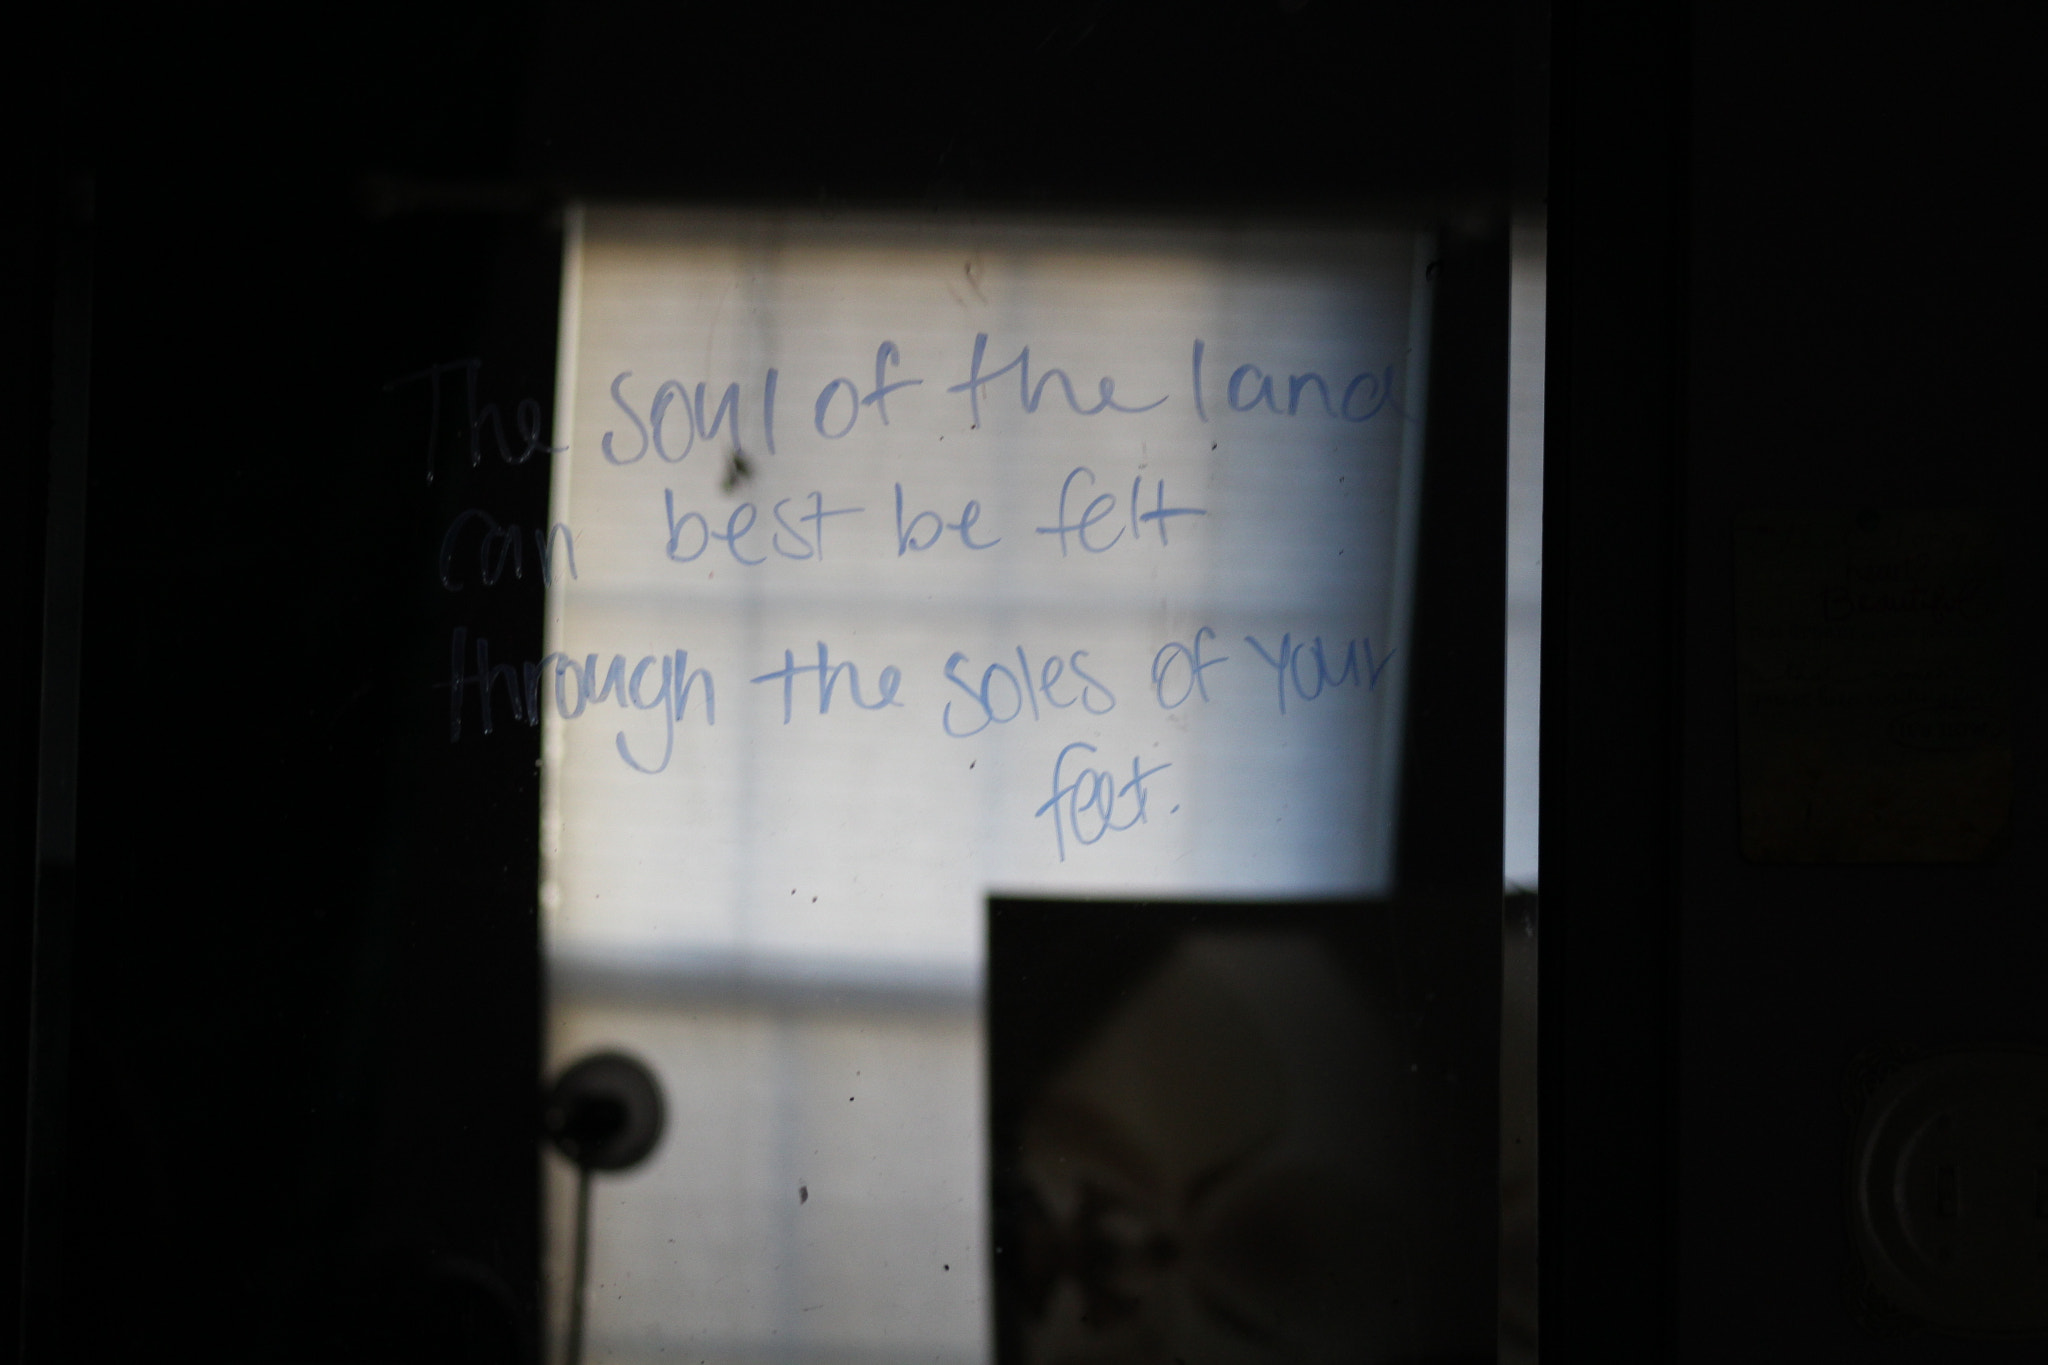 The soul of the land
can best be felt
through the soles of your
feet.